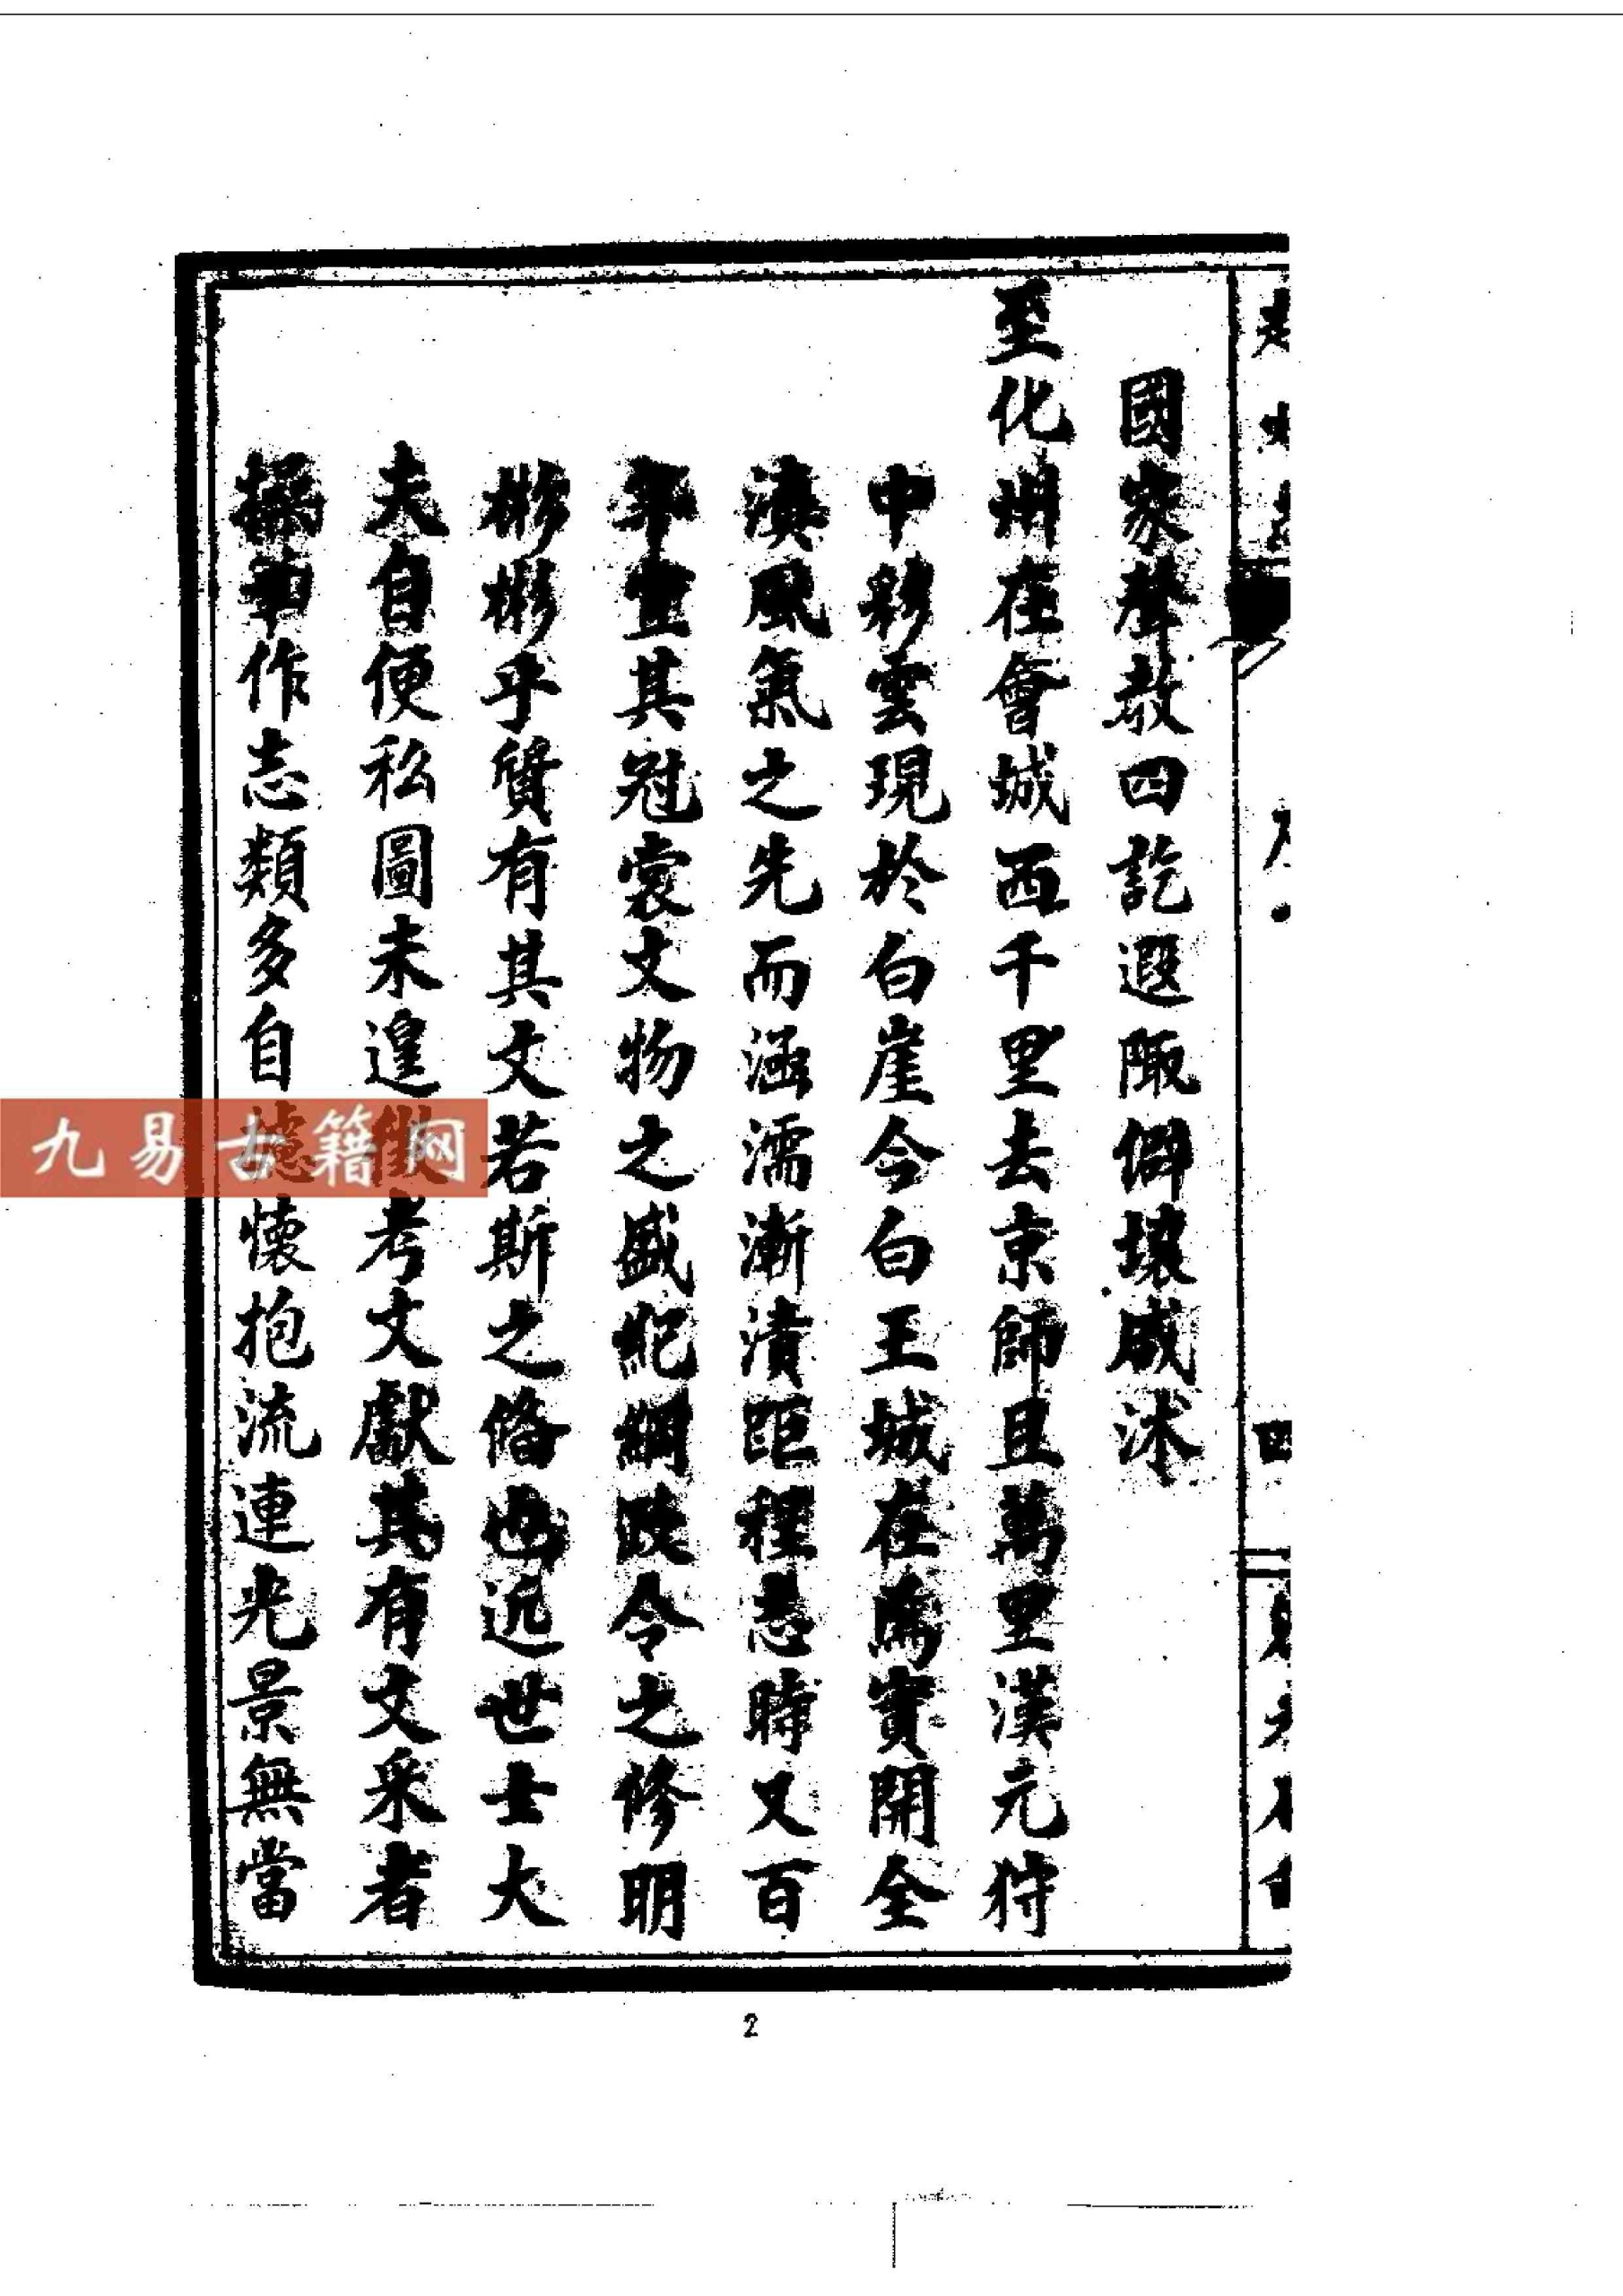 國家聲教四訖遐陬僻壤咸沐
至化州在會城西千里去京師且萬里漢元狩
中彩雲現於白崖今白王城在焉實開全
滇風氣之先而涵濡漸漬距程悉時又百
年宜其冠裳文物之盛紀綱政令之修明
彬彬乎質有其文若斯之偹也近世士大
夫自便私圖未遑徵考文獻其有文采者
操觚作志類多自攄懷抱流連光景無當
四
九易古籍网
2